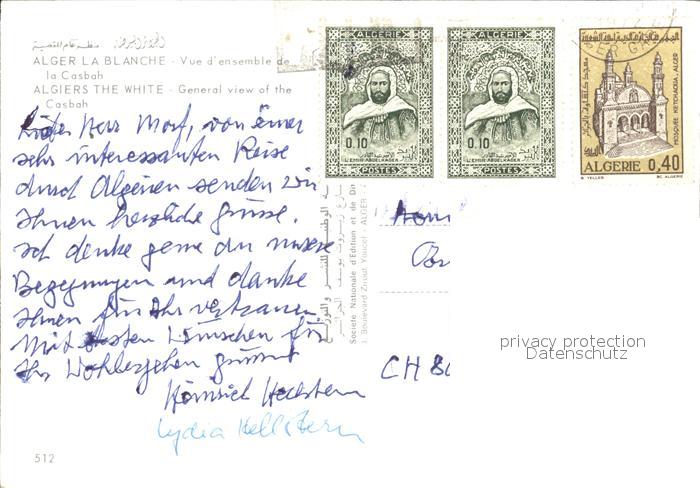 ALGER LA BLANCHE - Vue d'ensemble de
la Casbah
ALGIERS THE WHITE - General view of the
Casbah
Lieber Herr Morf, von einer
sehr interessanten Reise
durch Algerien senden wir
Ihnen herzliche Grüsse.
Ich denke gerne an unsere
Begegnungen und danke
Ihnen für Ihr Vertrauen
Mit besten Wünschen für
Ihr Wohlergehen grüsst
Heinrich Hellstern
Lydia Hellstern
512
ALGERIE
0.10
L'EMIR ABDELKADER
POSTES
ALGERIE
0.10
L'EMIR ABDELKADER
POSTES
MOSQUÉE KETCHAOUA, ALGER
ALGERIE 0,40
B. YELLES
Société Nationale d'Edition et de Di
3, Boulevard Zirout Youcef - ALGER
CH 80
privacy protection
Datenschutz